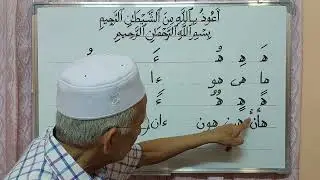 اَعُوْذُ بِاللّٰهِ مِنَ الشَّيْطٰنِ الرَّجِيْمِ
بِسْمِ اللّٰهِ الرَّحْمٰنِ الرَّحِيْمِ
هَ هِ هُ ءَ
ها هى هو ءا
هً هٍ هٌ ءً
هان هون ءان